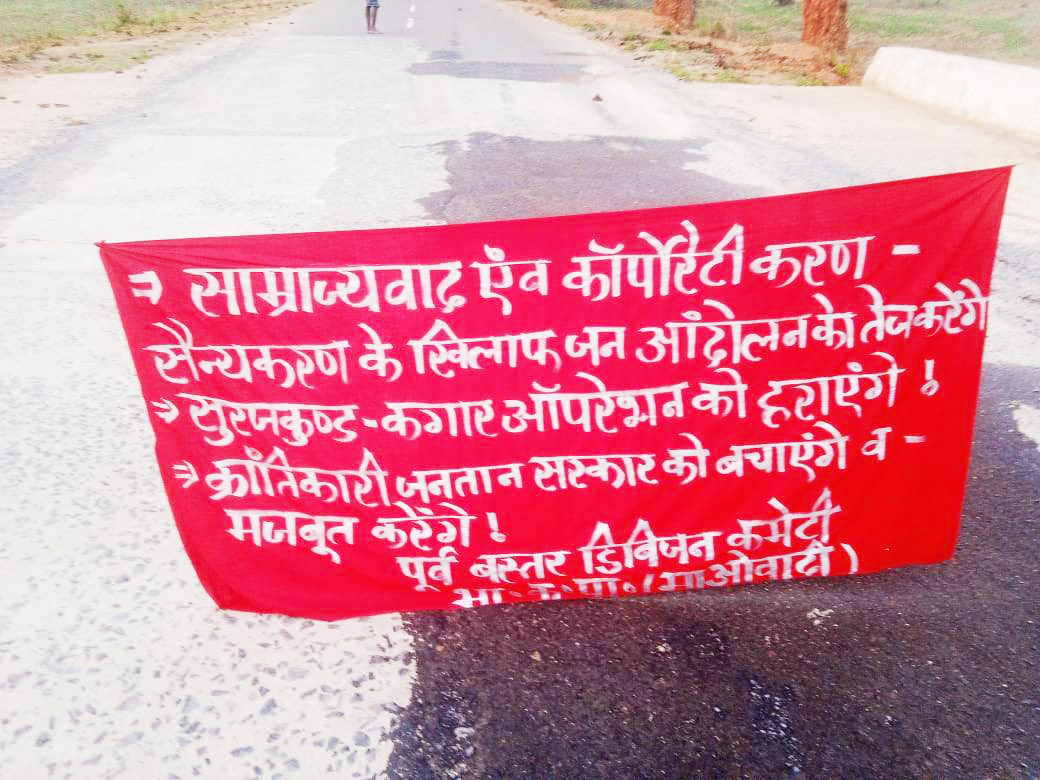 ⇒ साम्राज्यवाद एंव कॉर्पोरेटी करण -
सैन्यकरण के खिलाफ जन आंदोलन को तेज करेंगे
⇒ सुरजकुण्ड - कगार ऑपरेशन को हराएंगे !
⇒ क्राँतिकारी जनताना सरकार को बचाएंगे व -
मजबूत करेंगे !
पूर्व बस्तर डिविजन कमेटी
(माओवादी)